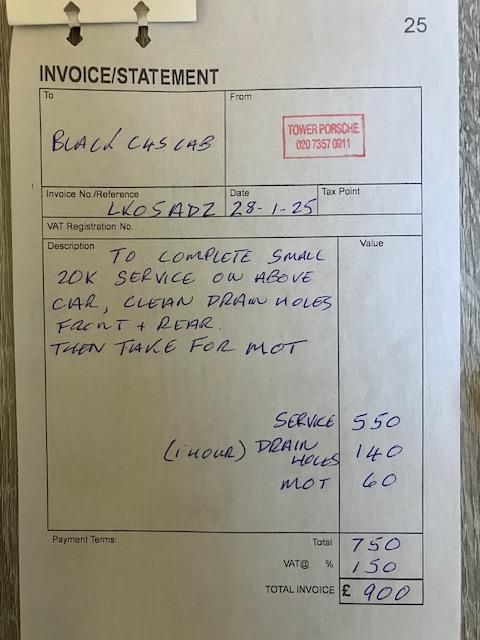 25
INVOICE/STATEMENT
To
From
BLACK C4S CAB
TOWER PORSCHE
020 7357 0911
Invoice No./Reference
Date
Tax Point
LK05ADZ
28-1-25
VAT Registration No.
Description
Value
TO COMPLETE SMALL
20K SERVICE ON ABOVE
CAR, CLEAN DRAIN HOLES
FRONT + REAR.
THEN TAKE FOR MOT
SERVICE 550
(1 HOUR) DRAIN HOLES 140
MOT 60
Payment Terms:
Total 750
VAT@ % 150
TOTAL INVOICE £ 900